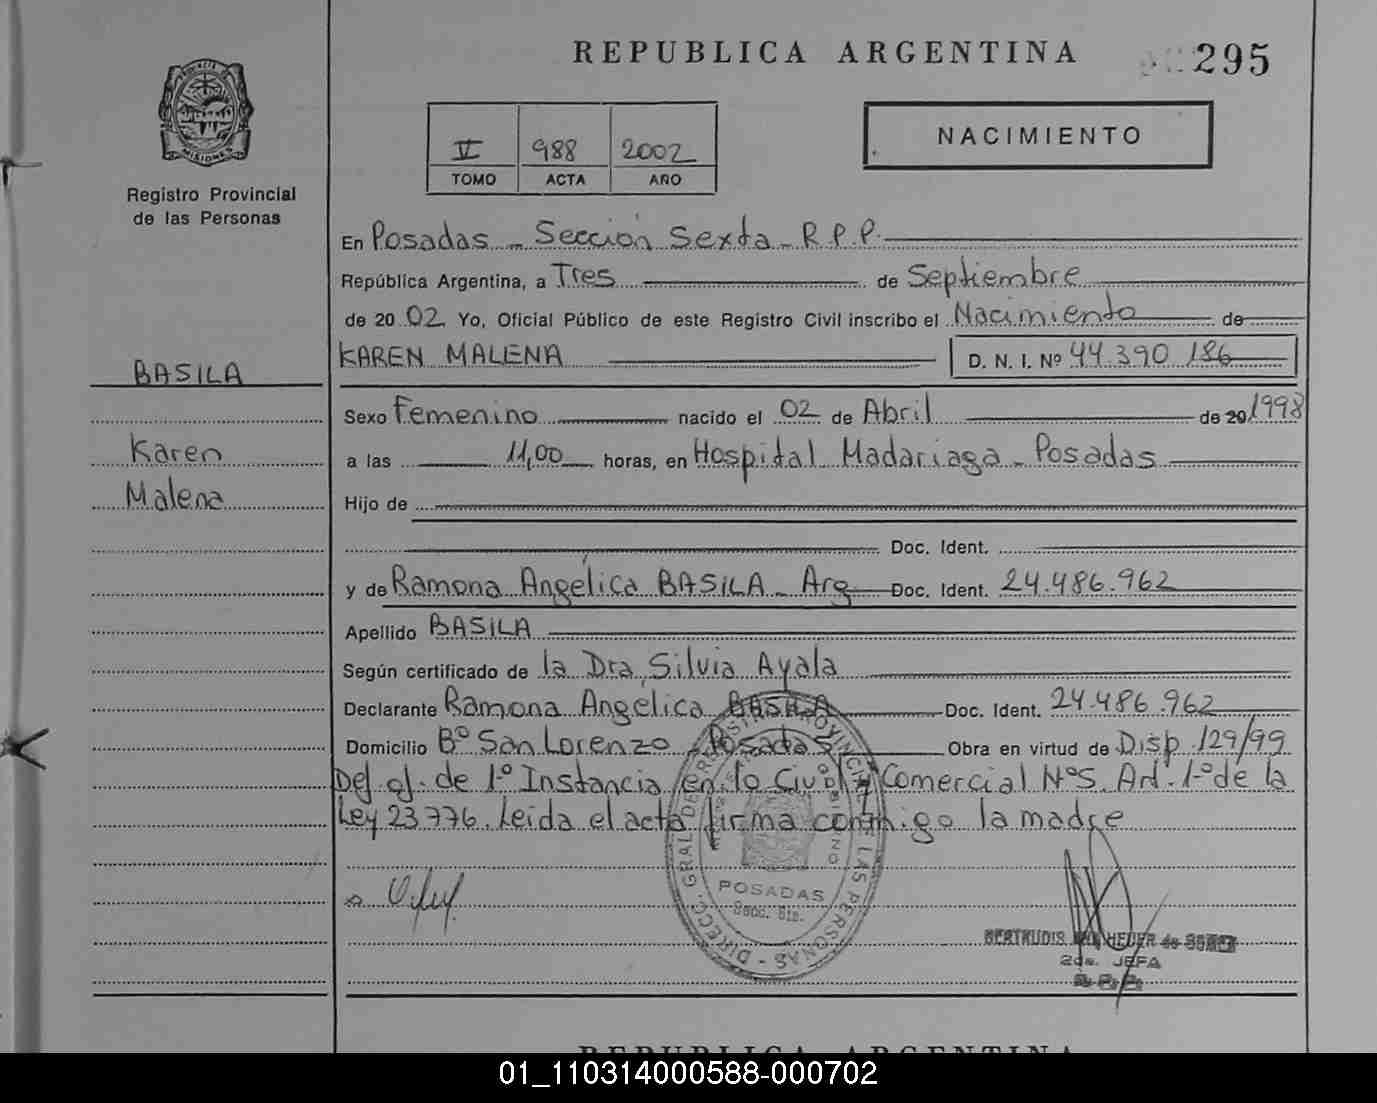 REPUBLICA ARGENTINA
295
NACIMIENTO
V 988 2002
TOMO ACTA AÑO
MISIONES
Registro Provincial
de las Personas
En Posadas - Sección Sexta - R.P.P.
República Argentina, a Tres de Septiembre
de 20 02 Yo, Oficial Público de este Registro Civil inscribo el Nacimiento de
KAREN MALENA D. N. I. Nº 44.390.186
BASILA
Karen
Malena
Sexo Femenino nacido el 02 de Abril de 20 1998
a las 11,00 horas, en Hospital Madariaga - Posadas
Hijo de
Doc. Ident.
y de Ramona Angélica BASILA - Arg Doc. Ident. 24.486.962
Apellido BASILA
Según certificado de la Dra. Silvia Ayala
Declarante Ramona Angélica BASILA Doc. Ident. 24.486.962
Domicilio Bº San Lorenzo - Posadas Obra en virtud de Disp. 129/99
Def. of. de 1º Instancia en lo Civil y Comercial Nº5. Art. 1º de la
Ley 23776. Leída el acta firma conmigo la madre
DIRECC. GRAL. DE REGISTRO PROVINCIAL DE LAS PERSONAS
POSADAS
Secc. 6ta.
GERTRUDIS HEUER de
2da. JEFA
REPUBLICA ARGENTINA
01_110314000588-000702